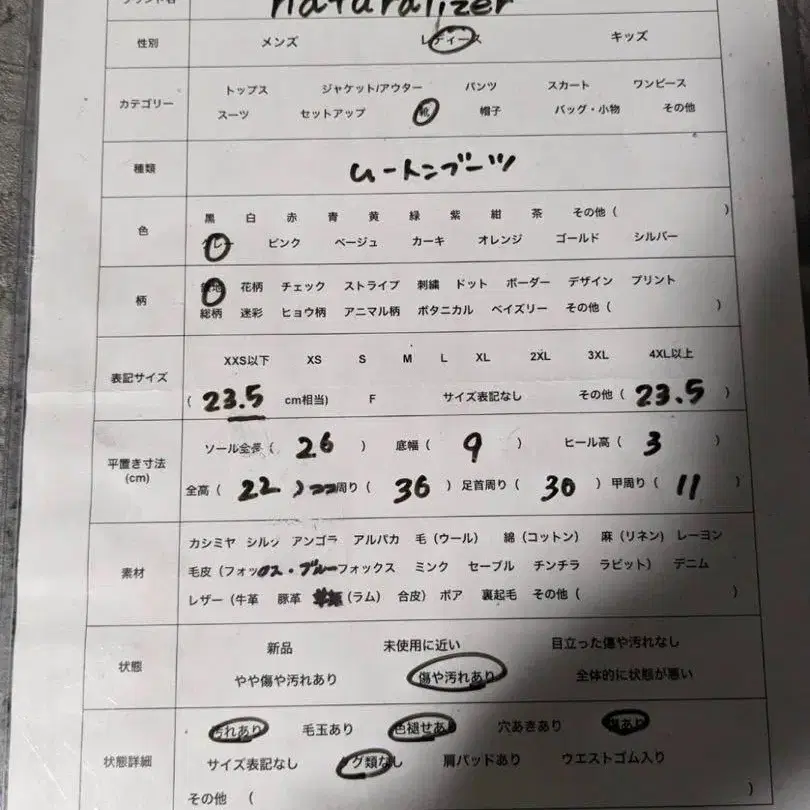 ブランド名 naturalizer
性別 メンズ レディース キッズ
カテゴリー トップス ジャケット/アウター パンツ スカート ワンピース
スーツ セットアップ 靴 帽子 バッグ・小物 その他
種類 ムートンブーツ
色 黒 白 赤 青 黄 緑 紫 紺 茶 その他 ( )
グレー ピンク ベージュ カーキ オレンジ ゴールド シルバー
柄 無地 花柄 チェック ストライプ 刺繍 ドット ボーダー デザイン プリント
総柄 迷彩 ヒョウ柄 アニマル柄 ボタニカル ペイズリー その他 ( )
表記サイズ XXS以下 XS S M L XL 2XL 3XL 4XL以上
( 23.5 cm相当) F サイズ表記なし その他 ( 23.5 )
平置き寸法 (cm) ソール全長 ( 26 ) 底幅 ( 9 ) ヒール高 ( 3 )
全高 ( 22 ) 周り ( 36 ) 足首周り ( 30 ) 甲周り ( 11 )
素材 カシミヤ シルク アンゴラ アルパカ 毛 (ウール) 綿 (コットン) 麻 (リネン) レーヨン
毛皮 (フォックス・ブルーフォックス ミンク セーブル チンチラ ラビット) デニム
レザー (牛革 豚革 (ラム) 合皮) ボア 裏起毛 その他 ( )
状態 新品 未使用に近い 目立った傷や汚れなし
やや傷や汚れあり 傷や汚れあり 全体的に状態が悪い
状態詳細 汚れあり 毛玉あり 色褪せあり 穴あきあり 傷あり
サイズ表記なし タグ類なし 肩パッドあり ウエストゴム入り
その他 (